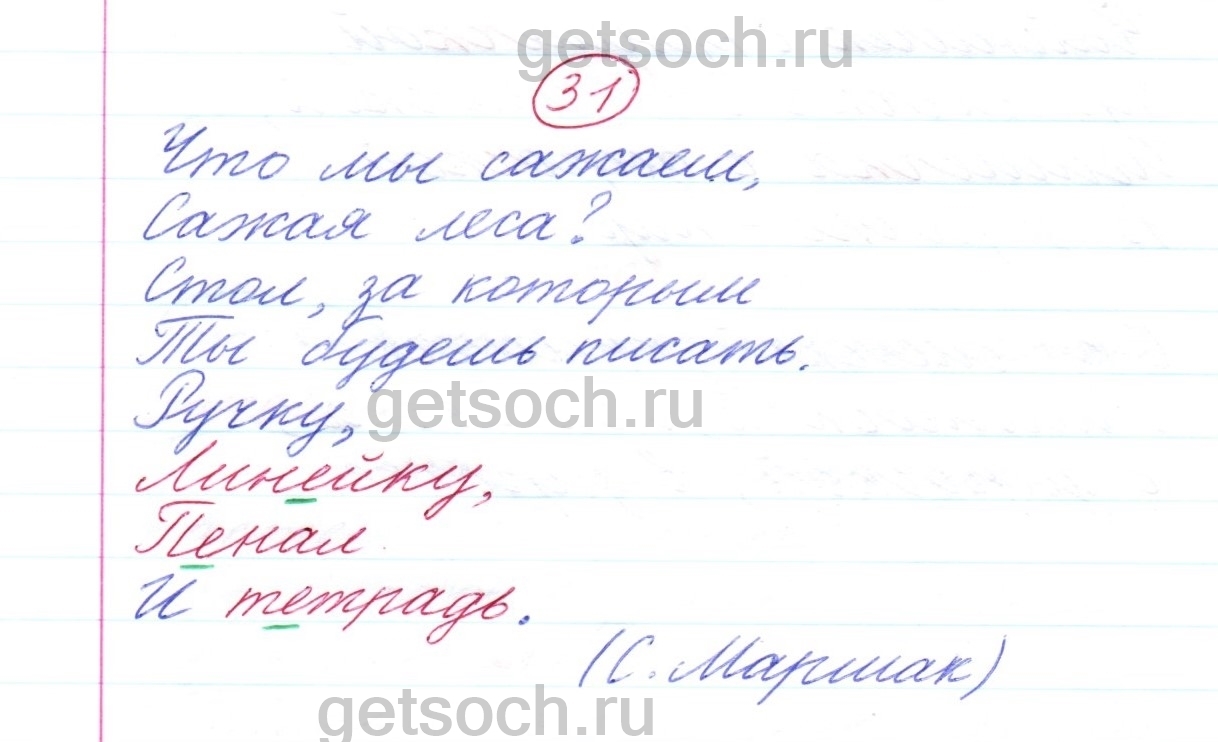 getsoch.ru
31
Что мы сажаем,
Сажая леса?
Стол, за которым
Ты будешь писать.
Ручку,
getsoch.ru
Линейку,
Пенал
И тетрадь.
(С. Маршак)
getsoch.ru